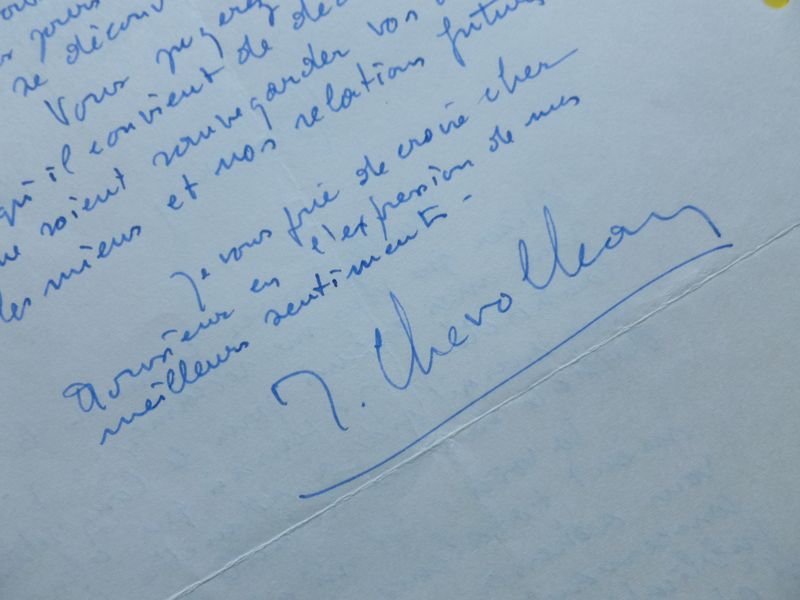 jours
se découv
Vous jugerez
qu'il convient de déc
ue soient sauvegarder vos
les miens et nos relations futures
Je vous prie de croire cher
Monsieur en l'expression de mes
meilleurs sentiments -